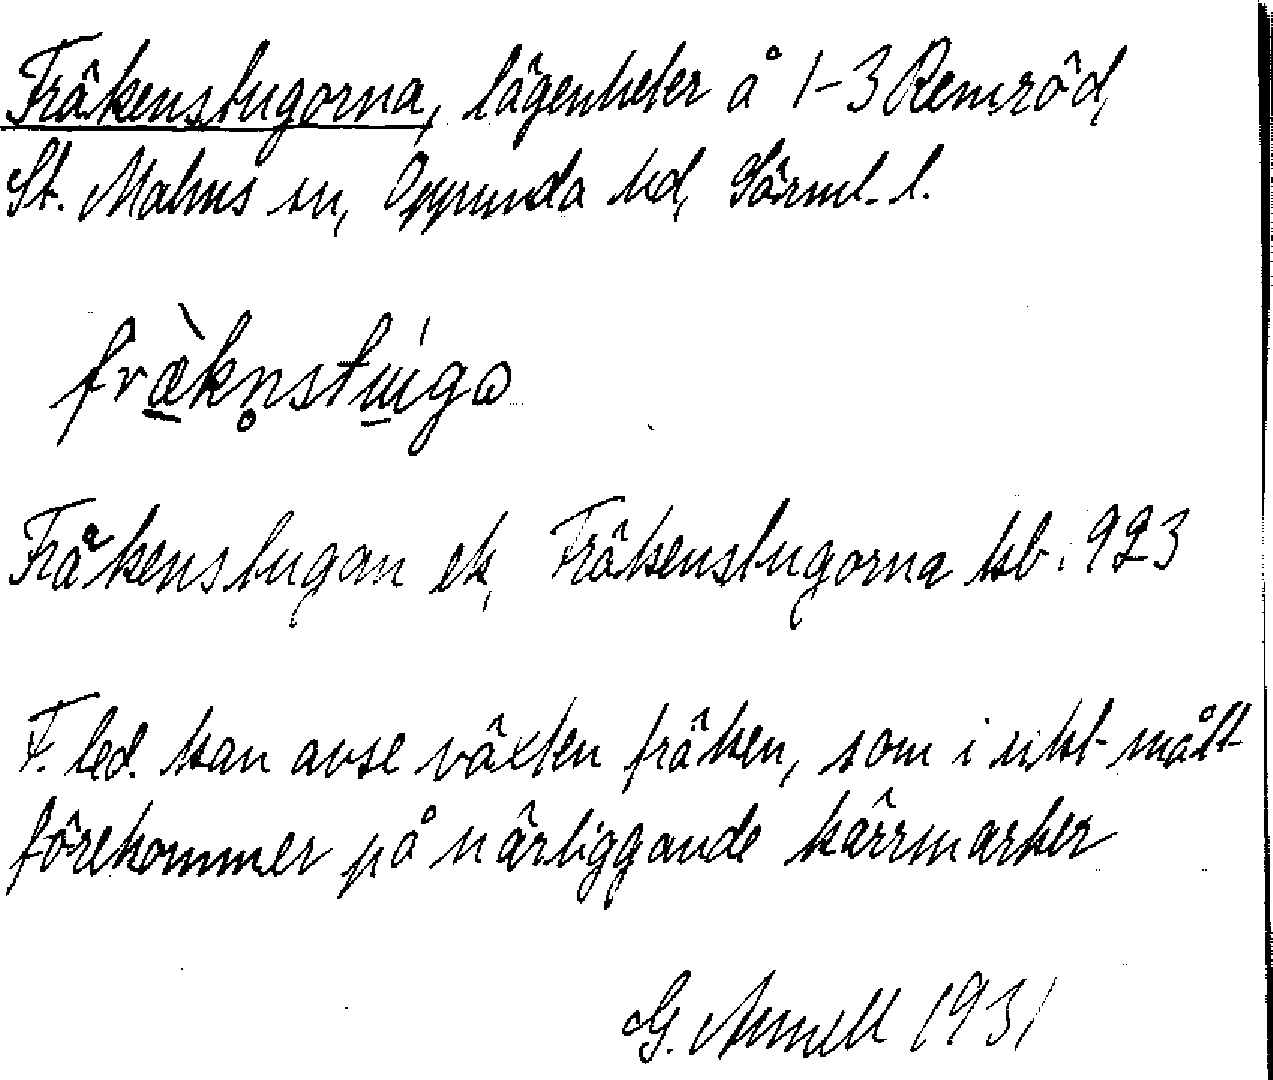 Fräkenstugorna, lägenheter å 1-3 Remröd,
St. Malms sn, Oppunda hd, Sörml. l.
fræ̀kn̥stu̇gɷ
Fräkenstugan ek, Fräkenstugorna kb. 923
F. led. kan avse växten fräken, som i rikt mått
förekommer på närliggande kärrmarker
G. Arnell 1931